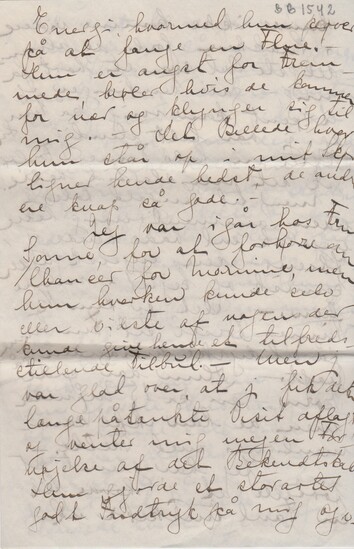 BB1542
Energi, hvormed hun prøver
på at fange en Flue. -
Hun er angst for Frem-
mede, bæver hvis de kommer
for nær og klynger sig til
mig. - Det Billede hvor
hun står op i mit
ligner hende bedst, de andre
ere knap så gode. -
Jeg var igår hos Fru
Sonne, for at forhøre om
Chancer for Mornine, men
hun hverken kunde selv
eller vidste af nogen der
kunde give hende et tilfreds-
stillende Tilbud. - Men jeg
var glad over, at j. fik det
længe påtænkte Visit aflagt
og venter mig megen For
højelse af det Bekendtskab
Hun gjorde et storartet
godt Indtryk på mig og